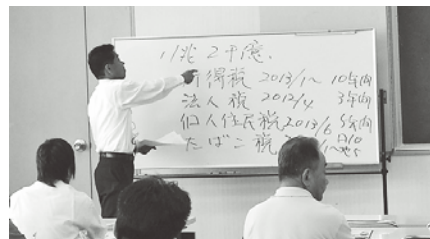 11兆2千億.
所得税 2013/1~ 10年内
法人税 2012/4 3年内
個人住民税 2013/6 5年内
たばこ税